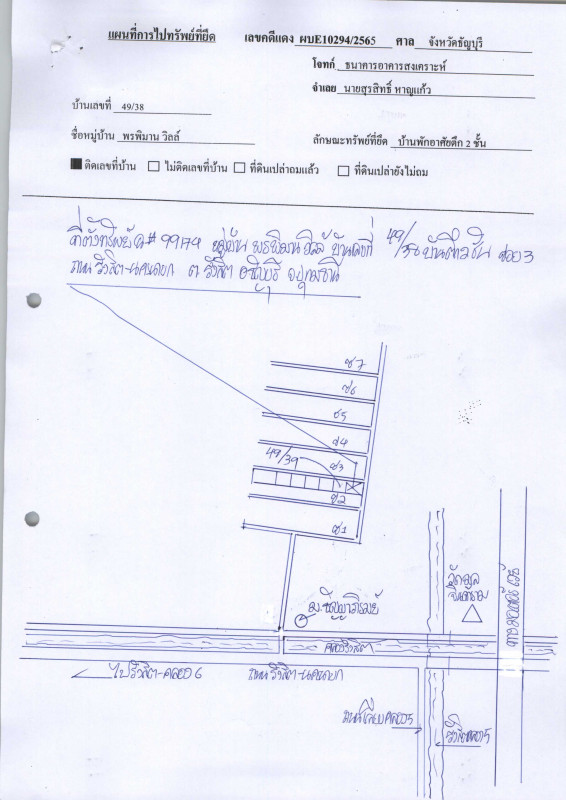 แผนที่การไปทรัพย์ที่ยึด เลขคดีแดง ผบE10294/2565 ศาล จังหวัดธัญบุรี
โจทก์ ธนาคารอาคารสงเคราะห์
จำเลย นายสุรสิทธิ์ หาญแก้ว
บ้านเลขที่ 49/38
ชื่อหมู่บ้าน พรพิมาน วิลล์ ลักษณะทรัพย์ที่ยึด บ้านพักอาศัยตึก 2 ชั้น
ติดเลขที่บ้าน ไม่ติดเลขที่บ้าน ที่ดินเปล่าถมแล้ว ที่ดินเปล่ายังไม่ถม
ที่ตั้งทรัพย์ หมู่บ้าน พรพิมาน วิลล์ บ้านเลขที่ 49/38 ซอย 3
ถนนรังสิต-นครนายก ต. รังสิต อ.ธัญบุรี จ.ปทุมธานี
ซ7
ซ6
ซ5
ซ4
49/39 ซ3
ซ2
ซ1
คลองรังสิต
ไปรังสิต-คลอง 6 ถนนรังสิต-นครนายก
ถนนเลียบคลอง5